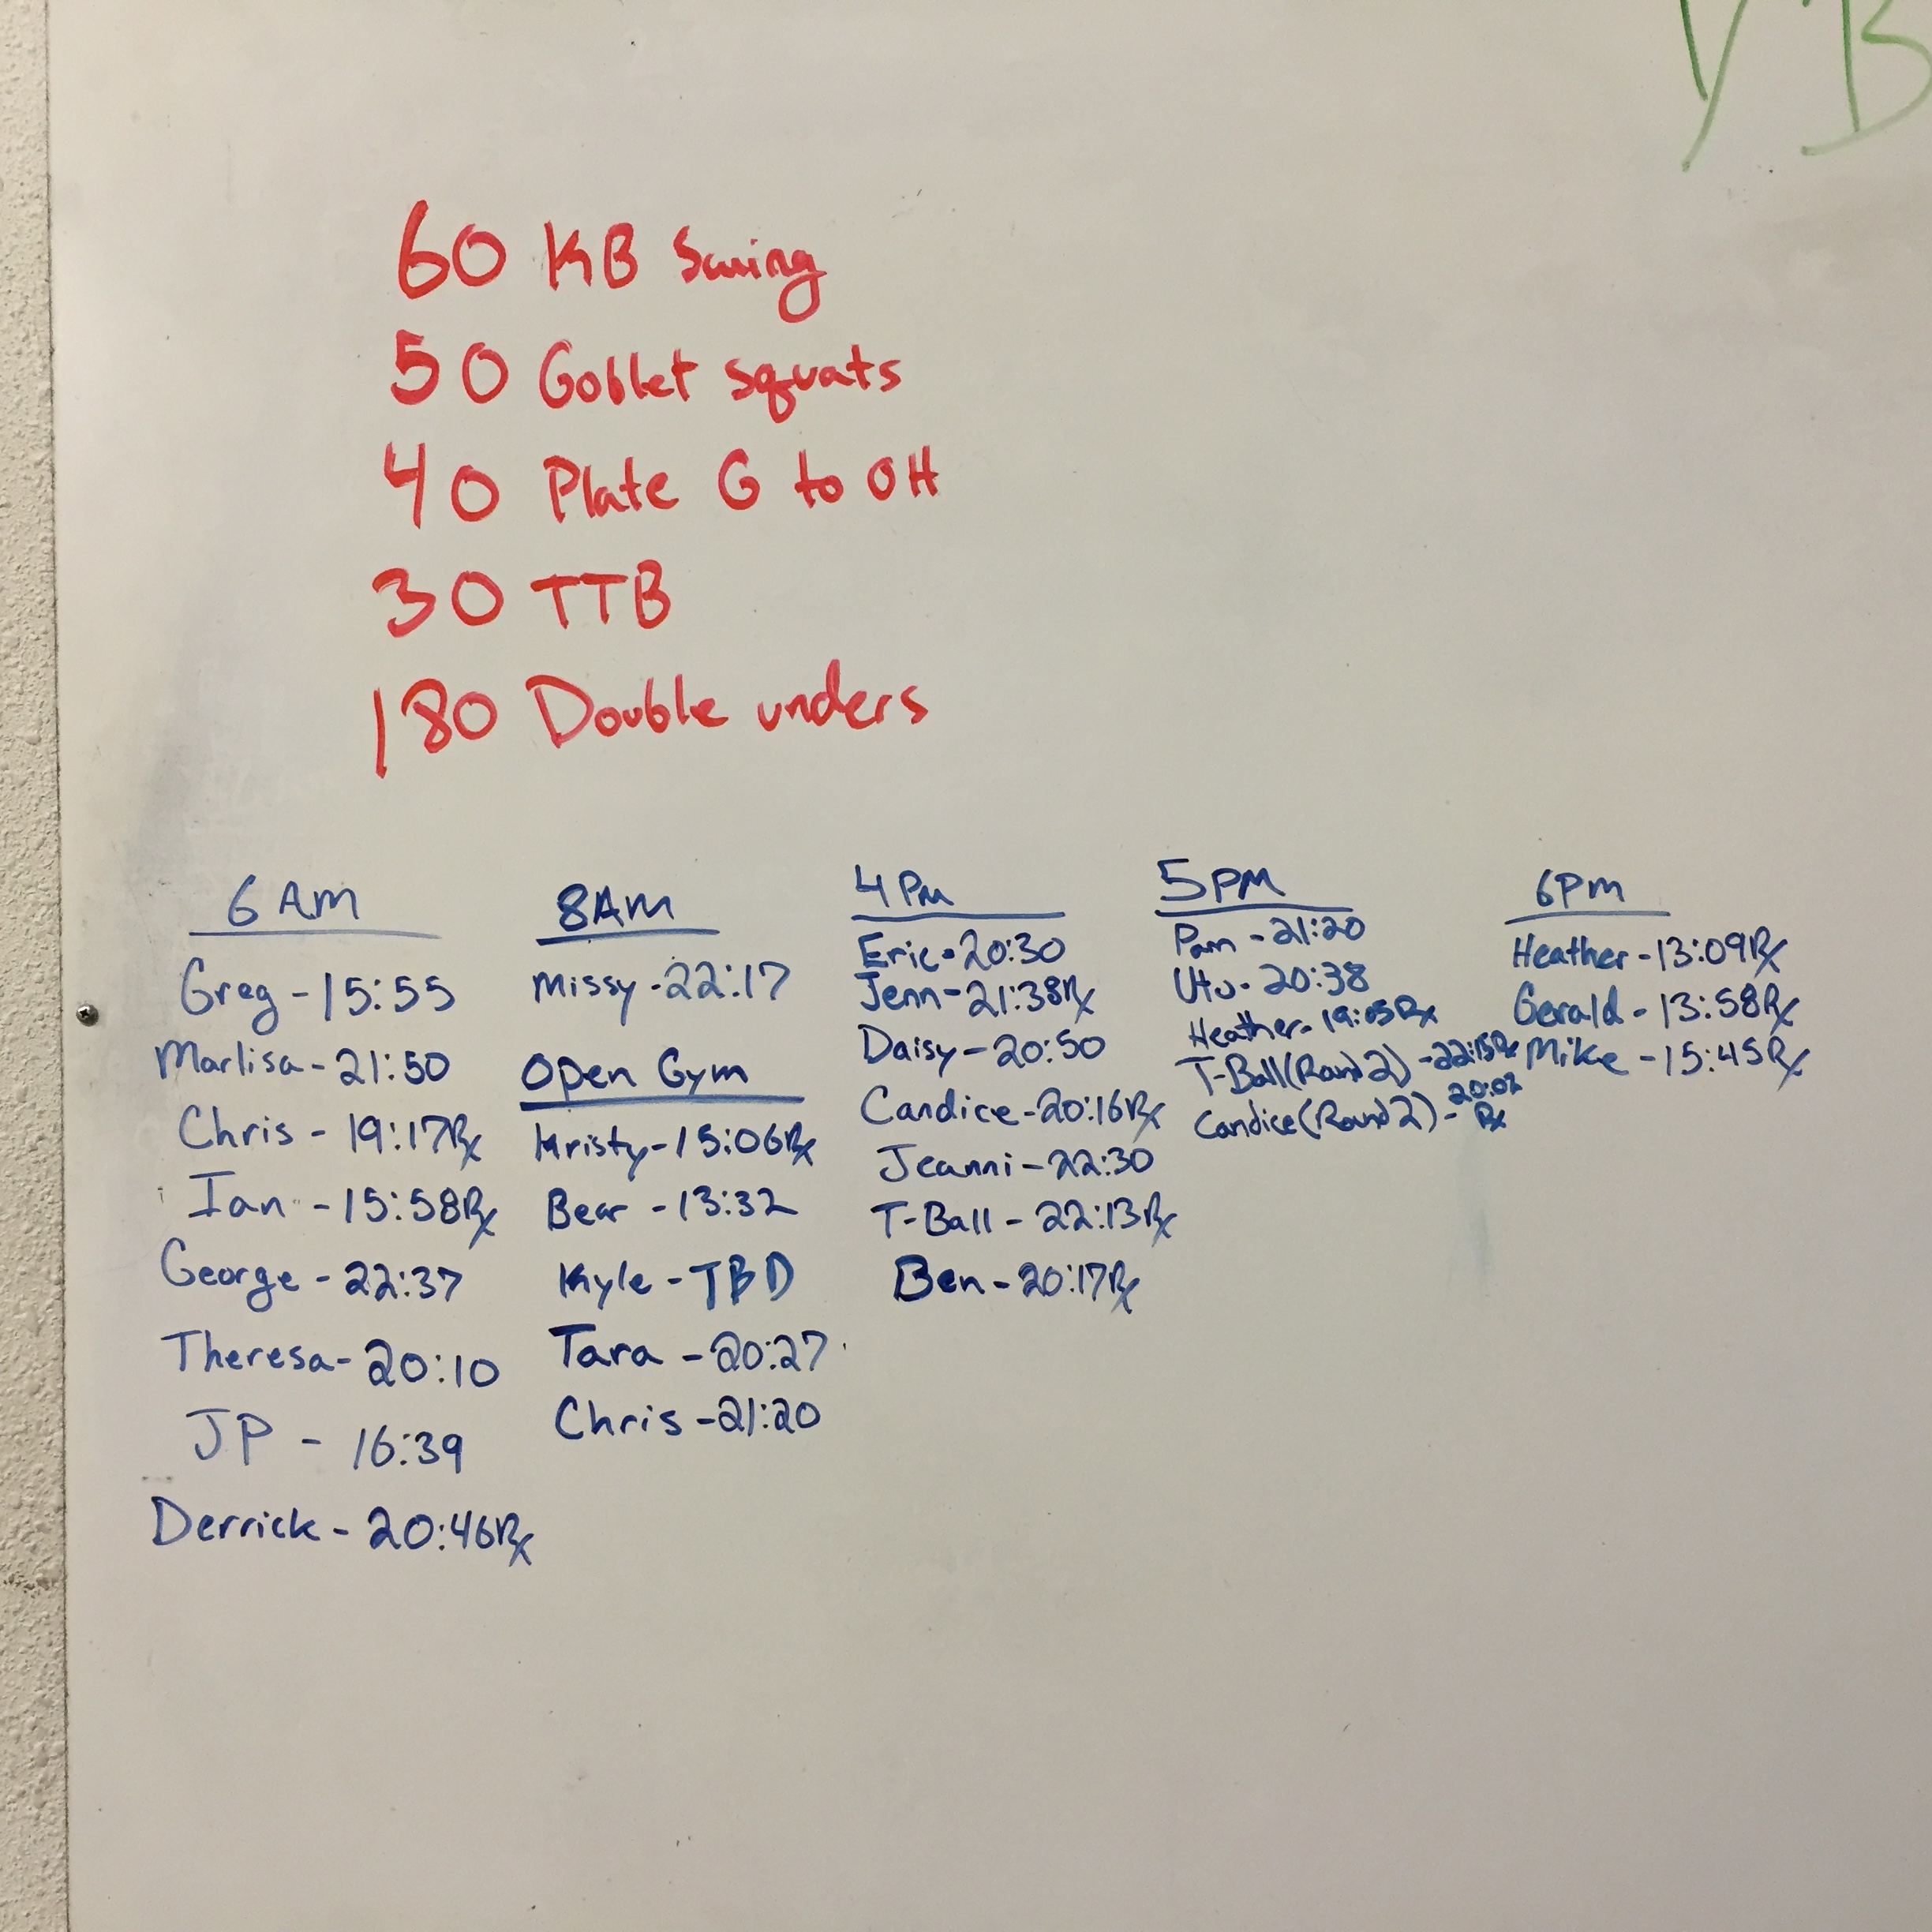 VB
60 KB Swing
50 Goblet squats
40 Plate G to OH
30 TTB
180 Double unders
6 AM
Greg - 15:55
Marlisa - 21:50
Chris - 19:17 Rx
Ian - 15:58 Rx
George - 22:37
Theresa - 20:10
JP - 16:39
Derrick - 20:46 Rx
8AM
Missy - 22:17
Open Gym
Kristy - 15:06 Rx
Bear - 13:32
Kyle - TBD
Tara - 20:27
Chris - 21:20
4PM
Eric - 20:30
Jenn - 21:38 Rx
Daisy - 20:50
Candice - 20:16 Rx
Jeanni - 22:30
T-Ball - 22:13 Rx
Ben - 20:17 Rx
5PM
Pam - 21:20
20:38
Heather - 19:05 Rx
T-Ball (Round 2) - Rx
Candice (Round 2) - 20:02 Rx
6PM
Heather - 13:09 Rx
Gerald - 13:58 Rx
Mike - 15:45 Rx